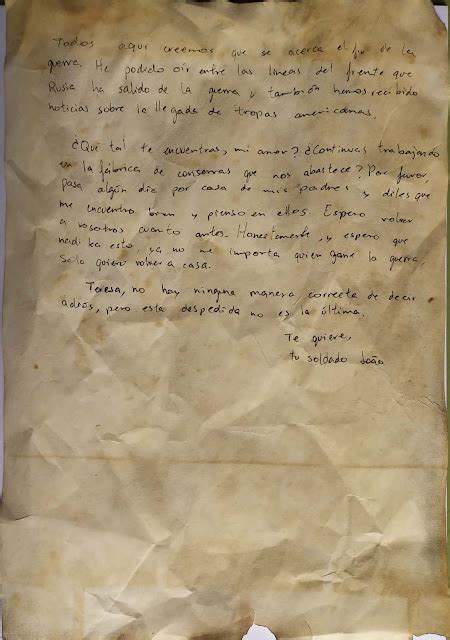 Todos aquí creemos que se acerca el fin de la
guerra. He podido oír entre las líneas del frente que
Rusia ha salido de la guerra y también hemos recibido
noticias sobre la llegada de tropas americanas.
¿Qué tal te encuentras, mi amor? ¿Continuas trabajando
en la fábrica de conservas que nos abastece? Por favor,
pasa algún día por casa de mis padres y diles que
me encuentro bien y pienso en ellos. Espero volver
a vosotros cuanto antes. Honestamente, y espero que
nadie lea esto, ya no me importa quien gane la guerra,
solo quiero volver a casa.
Teresa, no hay ninguna manera correcta de decir
adiós, pero esta despedida no es la última.
Te quiere,
tu soldado João